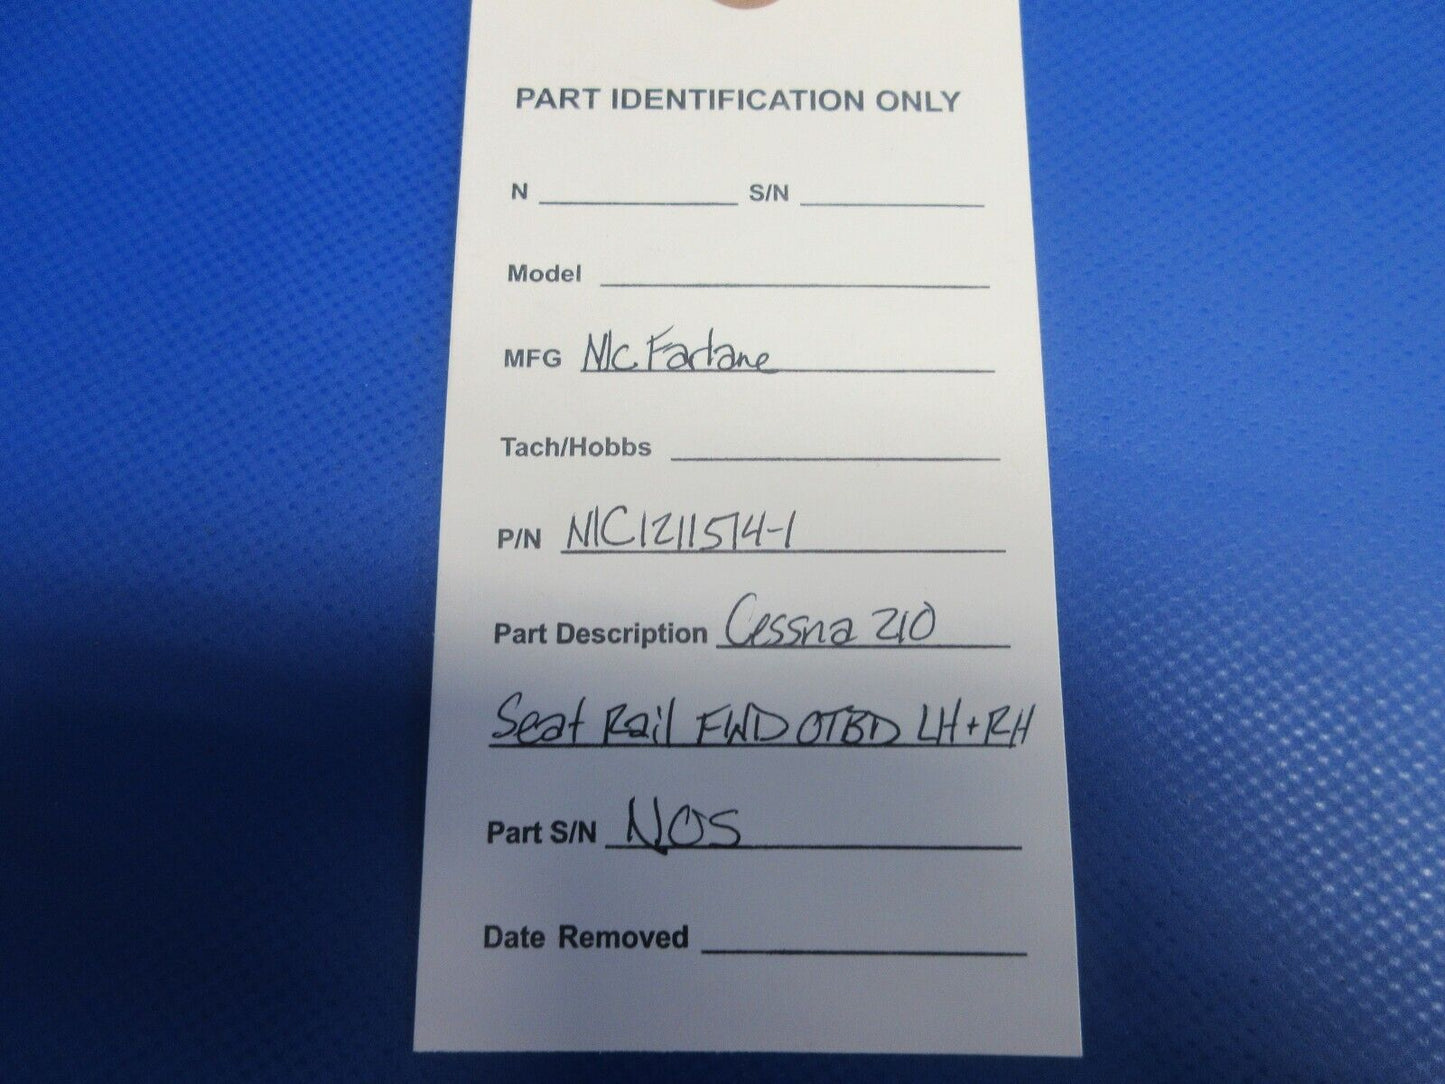 PART IDENTIFICATION ONLY
N S/N
Model
MFG McFarlane
Tach/Hobbs
P/N MC1211514-1
Part Description Cessna 210
Seat Rail FWD OTBD LH + RH
Part S/N NOS
Date Removed